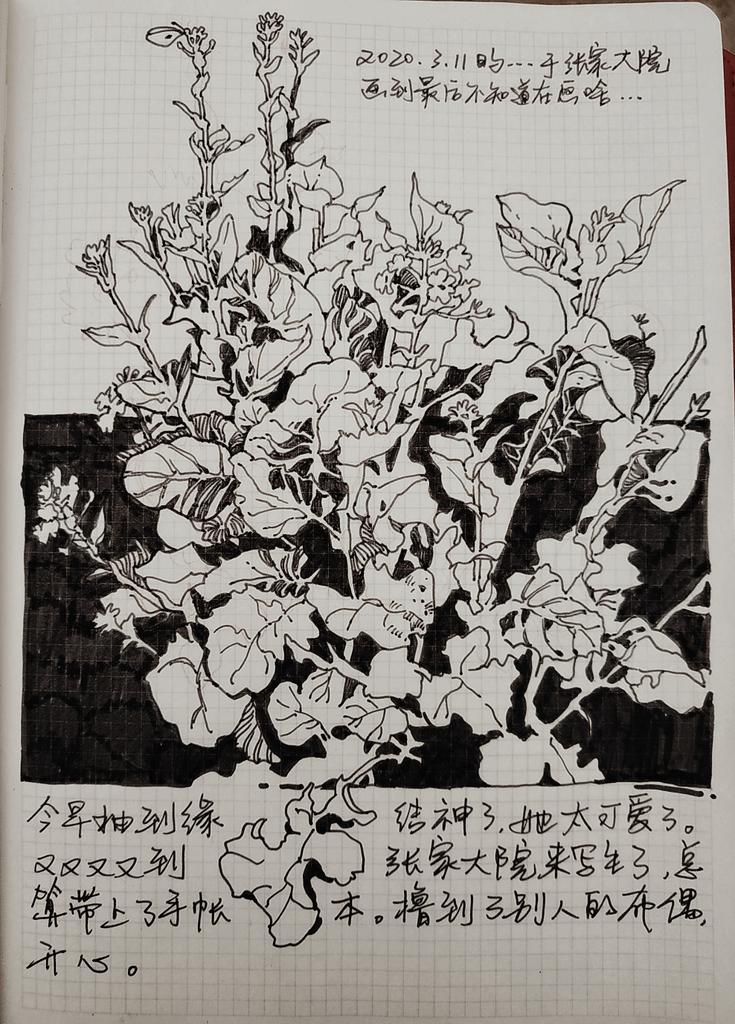 2020.3.11 的....于张家大院
画到最后不知道在画啥...
今早抽到缘结神了,她太可爱了。
又又又又到张家大院来写生了,总
算带上了手帐本。撸到了别人的布偶,
开心。